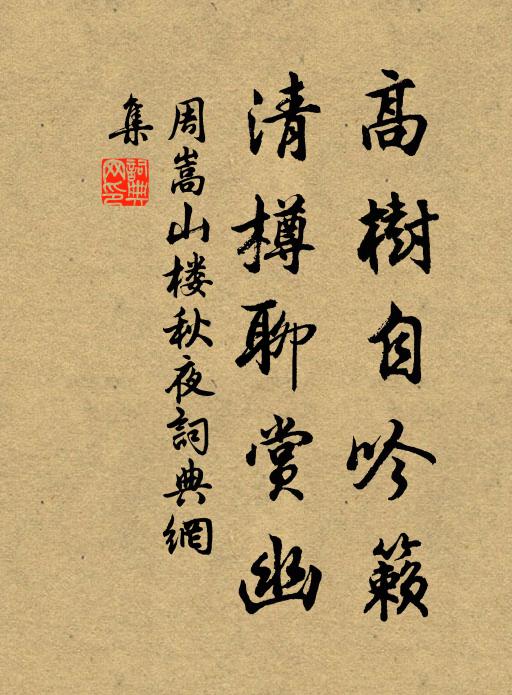 高樹自吟籟
清樽聊賞幽
周嵩山楼秋夜詞典網
集
詞典網印